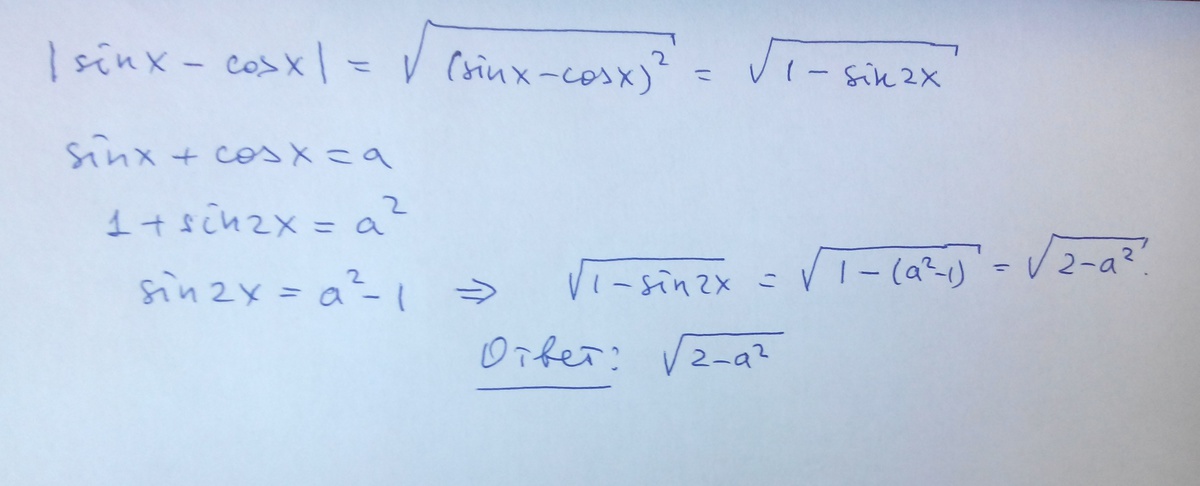 |sinx - cosx| = √(sinx-cosx)² = √1 - sin2x
sinx + cosx = a
1 + sin2x = a²
sin2x = a² - 1 ⇒ √1-sin2x = √1-(a²-1) = √2-a².
Ответ: √2-a²